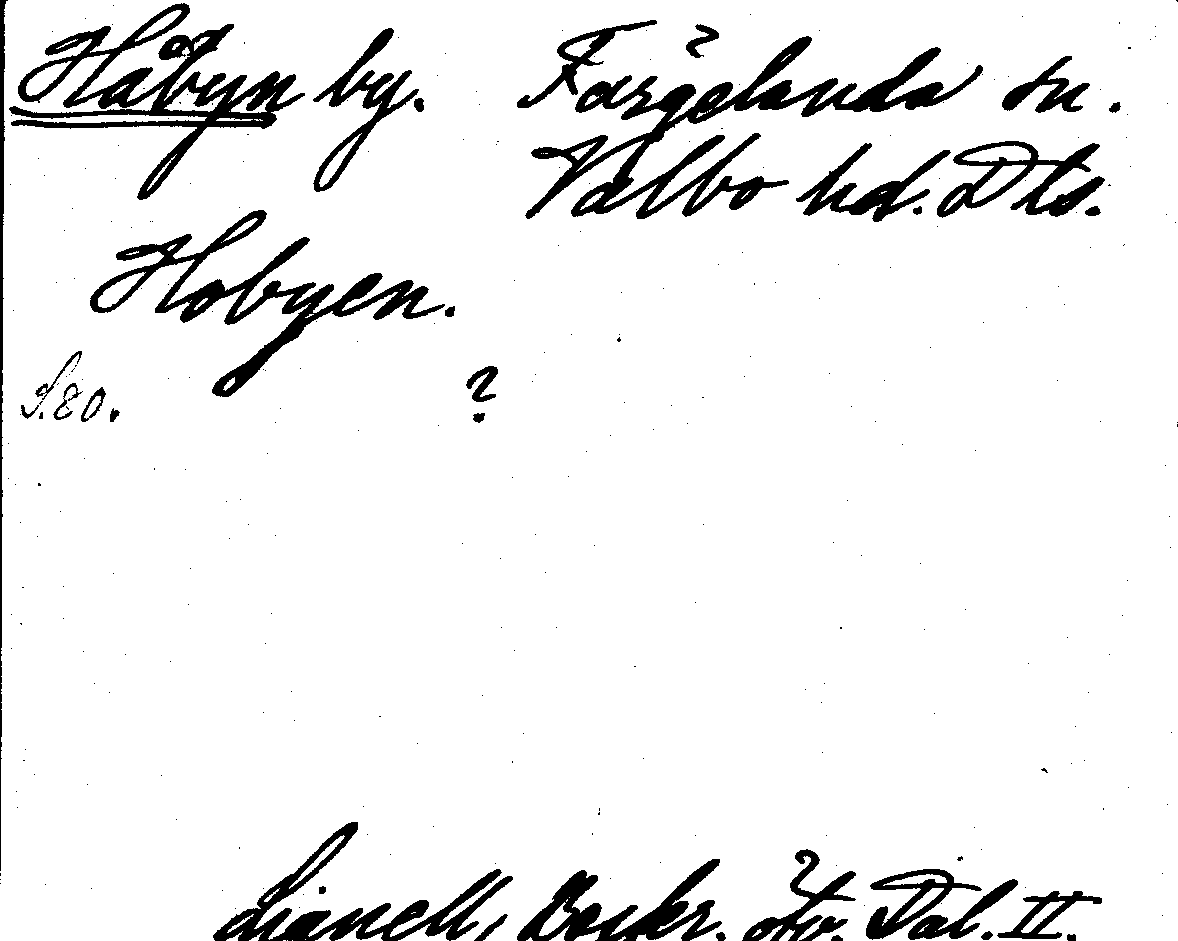 Håbyn by. Färgelanda sn.
Valbo hd. Dls.
Hobyen.
S. 80. ?
Lignell, Beskr. öfv. Dal. II.